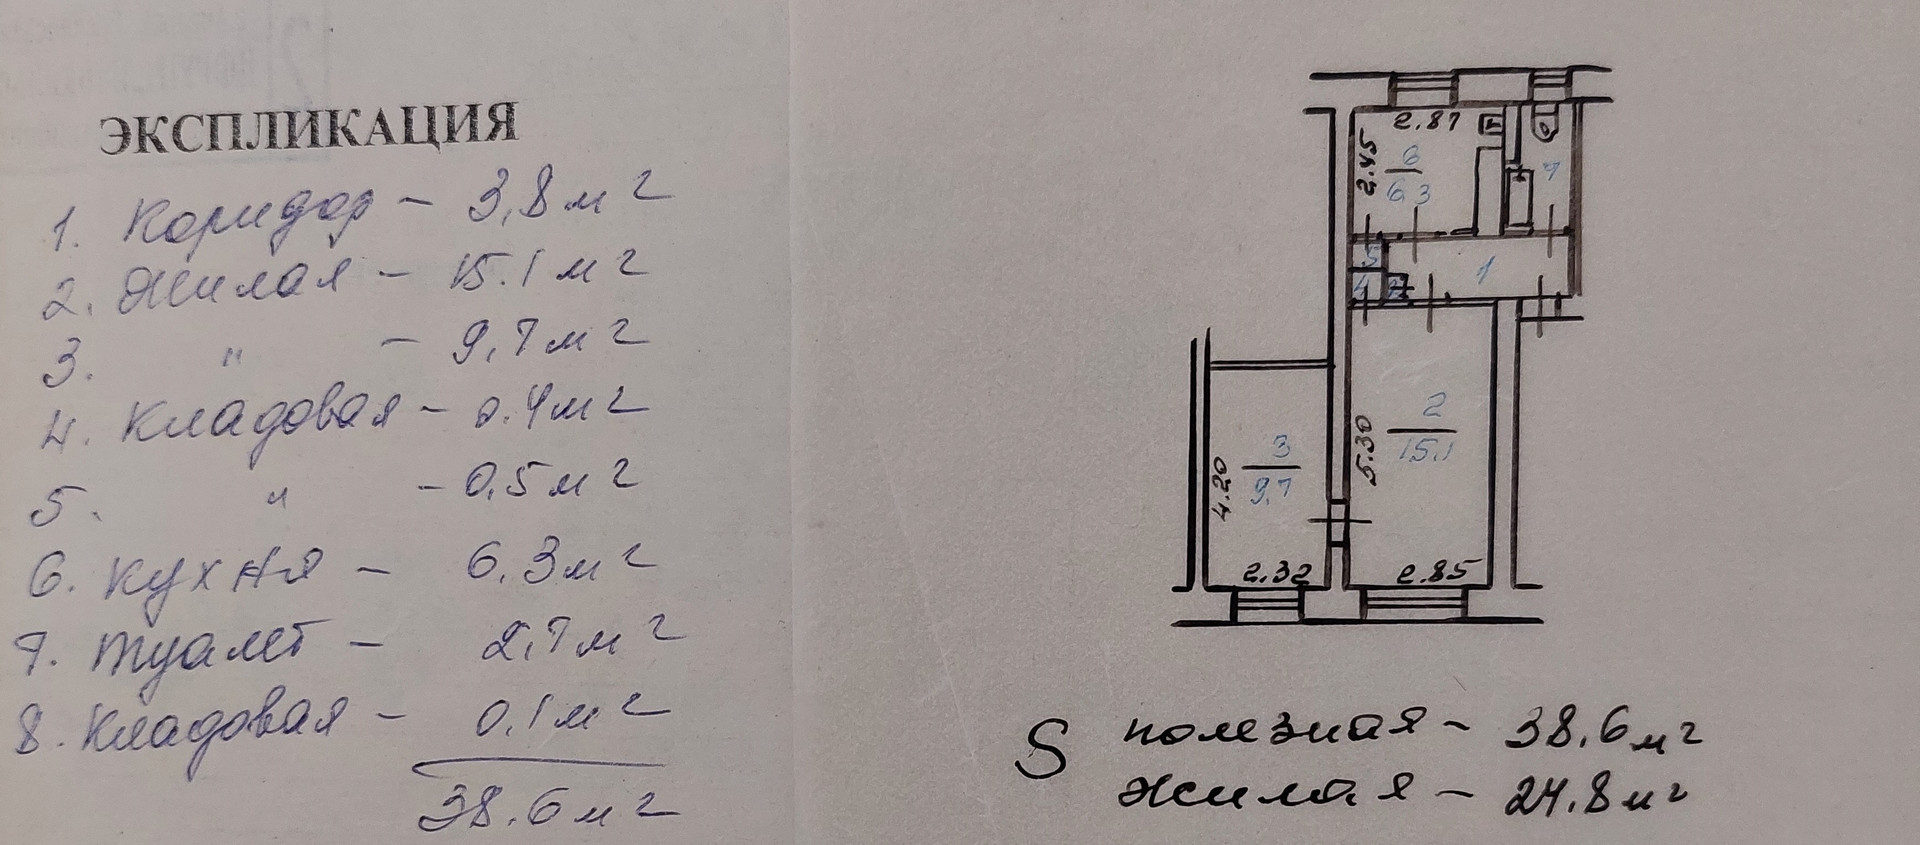 ЭКСПЛИКАЦИЯ
1. Коридор – 3,8 м2
2. Жилая – 15.1 м2
3. " – 9,7 м2
4. Кладовая – 0.4 м2
5. " – 0,5 м2
6. Кухня – 6,3 м2
7. Туалет – 2,7 м2
8. Кладовая – 0,1 м2
38.6 м2
2.87
2.45
6
6,3
7
5
4
1
2
15,1
5.30
3
9,7
4.20
2.32
2.85
S полезная – 38.6 м2
жилая – 24.8 м2